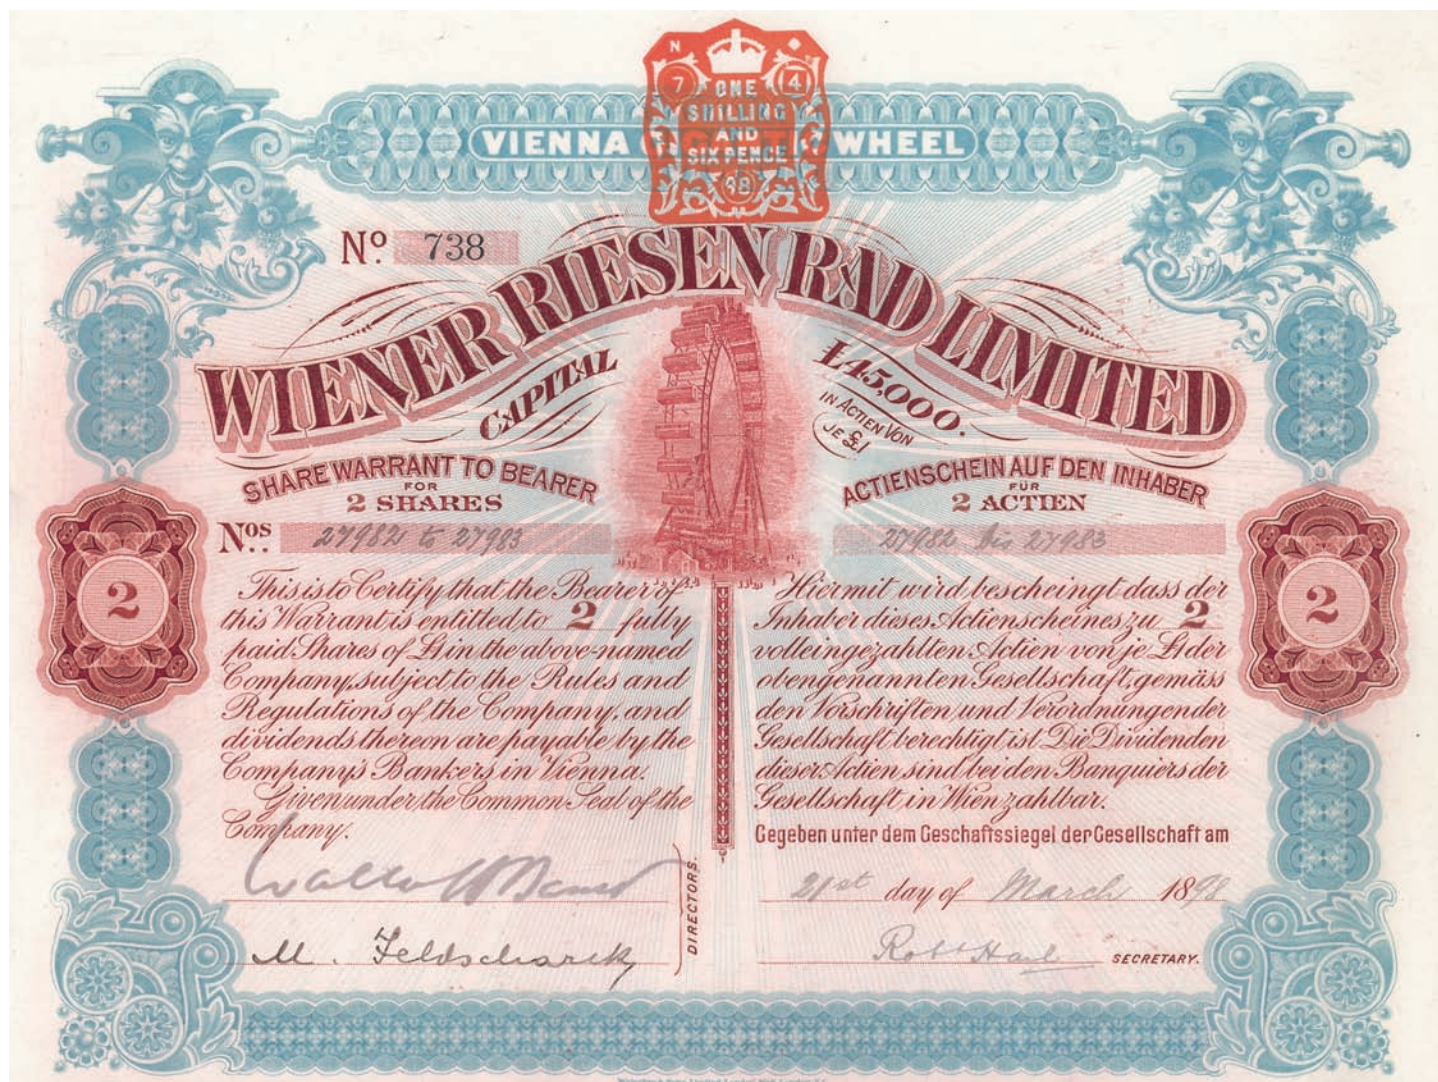 N
7 4
ONE
SHILLING
AND
SIX PENCE
98
VIENNA WHEEL
Nº 738
WIENER RIESEN RAD LIMITED
CAPITAL £45,000.
IN ACTIEN VON
JE £1
SHARE WARRANT TO BEARER
FOR
2 SHARES
Nos. 27982 to 27983
ACTIENSCHEIN AUF DEN INHABER
FÜR
2 ACTIEN
27982 bis 27983
2
This is to Certify that the Bearer of
this Warrant is entitled to 2 fully
paid Shares of £1 in the above-named
Company, subject to the Rules and
Regulations of the Company, and
dividends thereon are payable by the
Company's Bankers in Vienna.
Given under the Common Seal of the
Company.
Hiermit wird bescheingt dass der
Inhaber dieses Actienscheines zu 2
volleingezahlten Actien von je £1 der
obengenannten Gesellschaft, gemäss
den Vorschriften und Verordnungen der
Gesellschaft berechtigt ist. Die Dividenden
dieser Actien sind bei den Banquiers der
Gesellschaft in Wien zahlbar.
Gegeben unter dem Geschaftssiegel der Gesellschaft am
2
Walter B
M. Feldscharek
DIRECTORS.
21st day of March 1898
Robt Hael SECRETARY.